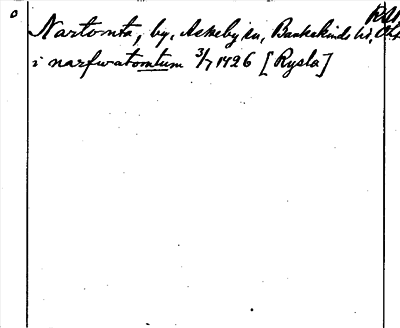 Nartomta, by, Askeby sn, Bankekinds hd, Ög.
i narfwatomtum 3/7 1426 [Rysla]